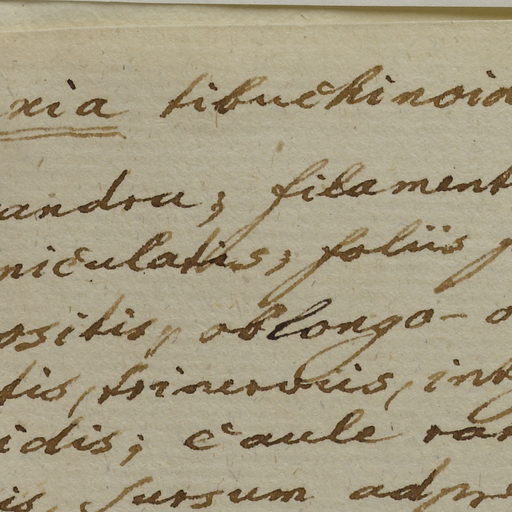 xia tibučhinoid
andra; filament
ničulatis; foliis p
ositis, oblongo-o
tis, trinerviis, integ
idis; čaule ram
is, sursum adpre